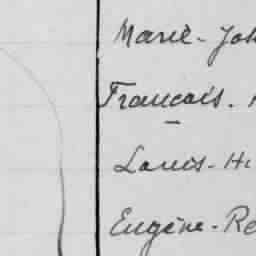 Marie-Joh
François.
Louis-Hi
Eugène-Re